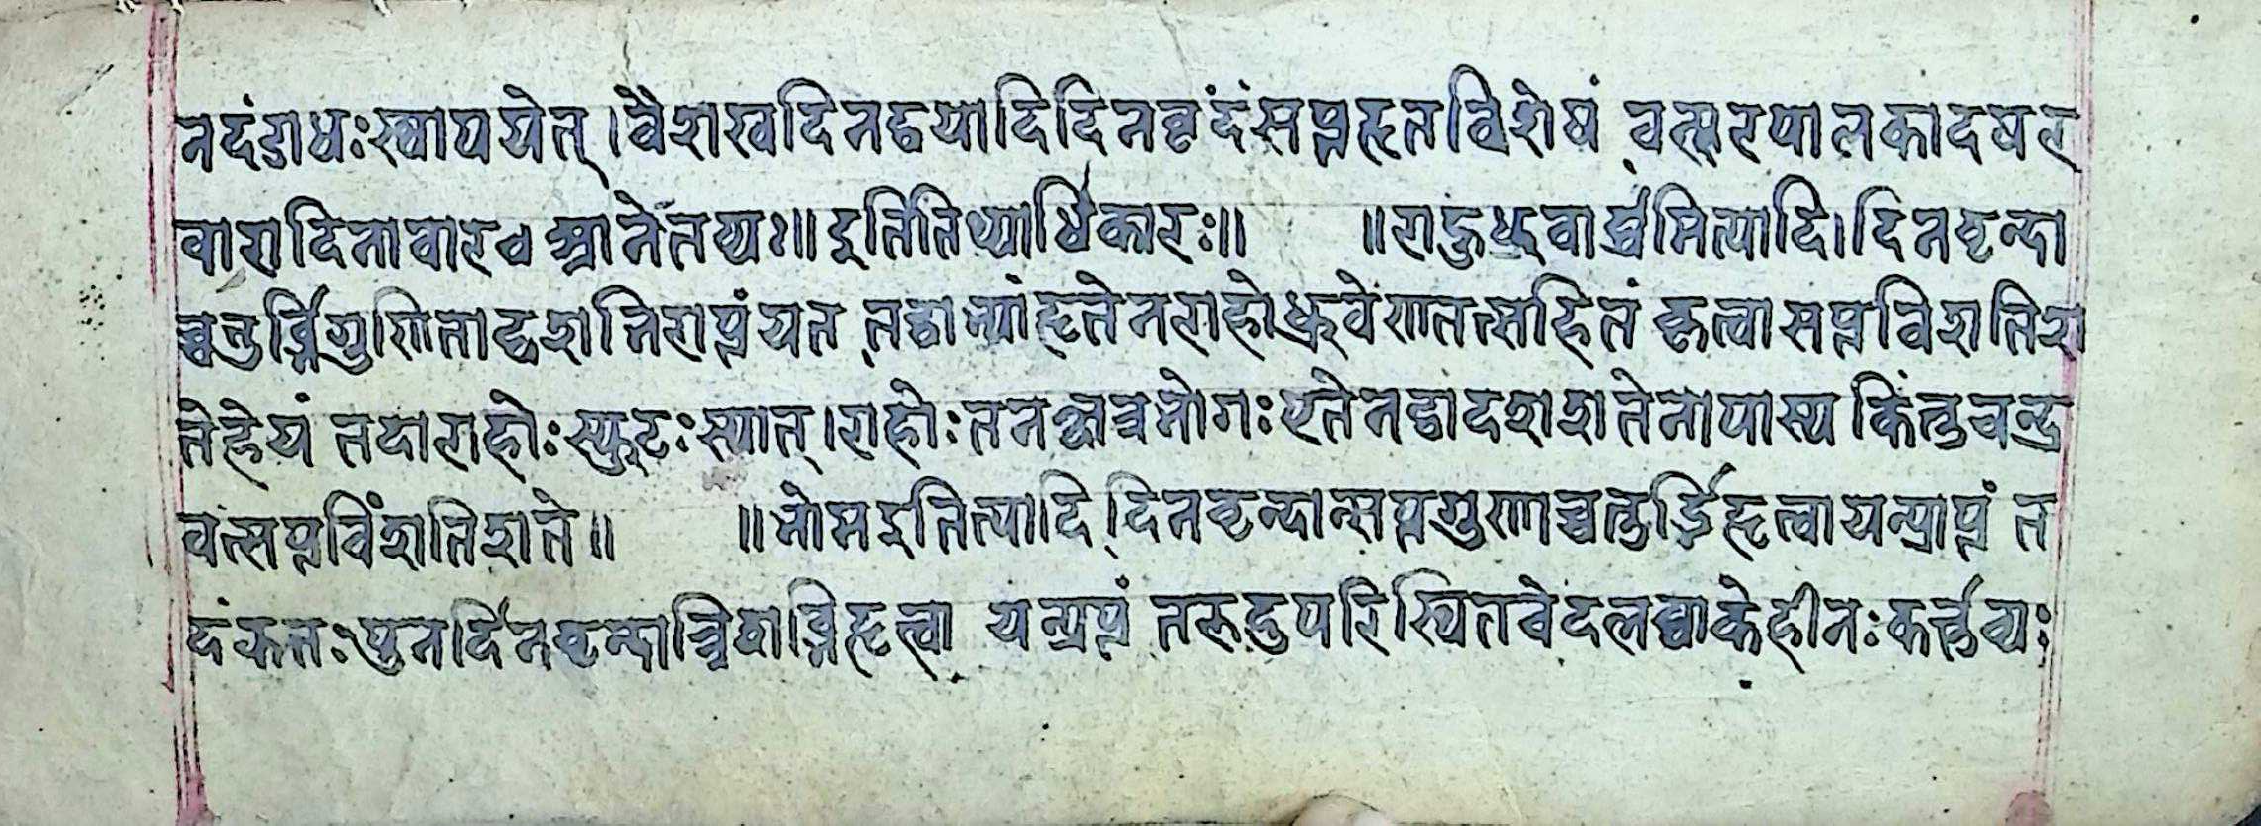 नदंडाधःस्थापयेत्।वैशाखदिनद्वयादिदिनवृदंसप्तहृतविशेषं वत्सरपालकादषर
वारादिनावारवक्रानेतव्यः॥इतितिथ्याधिकारः॥ ॥राहुध्रुवार्द्धमित्यादि।दिनवृन्दा
च्चतुर्भिगुणिताद्दशत्रिराप्तंयत तद्वाभ्यांहृतेनराहोध्रुवेणतत्सहितं कृत्वासप्तविशतिश
तेहेयं तदाराहोःस्फुटःस्यात्।राहोःतनक्षत्रभोगःएतेनद्वादशशतेनोपास्य किंतुचन्द्र
वत्सप्तविंशतिशते॥ ॥भोमइतित्यादि दिनवृन्दान्सप्तगुणाच्चतुर्भिहृत्वायत्प्राप्तं त
दंकतःपुनर्दिनवृन्दाच्चिवाग्निहृत्वा यत्प्राप्तं तरूदुपरिस्थितवेदलब्धाकेहीनःकर्त्तव्यः